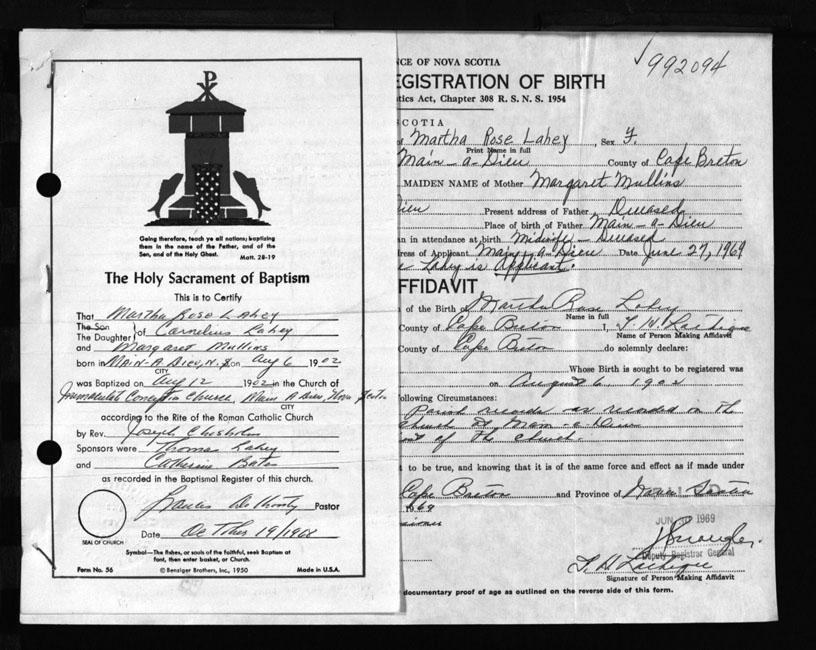 Going therefore, teach ye all nations; baptizing
them in the name of the Father, and of the
Son, and of the Holy Ghost.
Matt. 28-19
The Holy Sacrament of Baptism
This is to Certify
That Martha Rose Lahey
The Son
The Daughter } of Cornelius Lahey
and Margaret Mullins
born in Main-A-Dieu, N.S. on Aug 6 1902
CITY
was Baptized on Aug 12 1902 in the Church of
Immaculate Conception Church, Main A Dieu, Nova Scotia
CITY
according to the Rite of the Roman Catholic Church
by Rev. Joseph Chisholm
Sponsors were Thomas Lahey
and Catherine
as recorded in the Baptismal Register of this church.
Francis Pastor
Date October 19/1968
SEAL OF CHURCH
Symbol—The fishes, or souls of the faithful, seek Baptism at
font, then enter basket, or Church.
Form No. 56 © Benziger Brothers, Inc., 1950 Made in U.S.A.
992094
NCE OF NOVA SCOTIA
EGISTRATION OF BIRTH
tics Act, Chapter 308 R. S. N. S. 1954
SCOTIA
of Martha Rose Lahey, Sex F.
Print Name in full
Main-a-Dieu County of Cape Breton
MAIDEN NAME of Mother Margaret Mullins
Dieu Present address of Father Deceased
Place of birth of Father Main-a-Dieu
an in attendance at birth Midwife - Deceased
ress of Applicant Main-a-Dieu Date June 27, 1969
Lahey is Applicant.
FFIDAVIT
n of the Birth of Martha Rose Lahey
Name in full
County of Cape Breton I,
Name of Person Making Affidavit
County of Cape Breton do solemnly declare:
Whose Birth is sought to be registered was
on August 6, 1902
ollowing Circumstances:
Parish records as recorded in the
church at Main-a-Dieu
of the church.
t to be true, and knowing that it is of the same force and effect as if made under
Cape Breton and Province of Nova Scotia
1969
issioner
JUN 1969
Deputy Registrar General
Signature of Person Making Affidavit
documentary proof of age as outlined on the reverse side of this form.